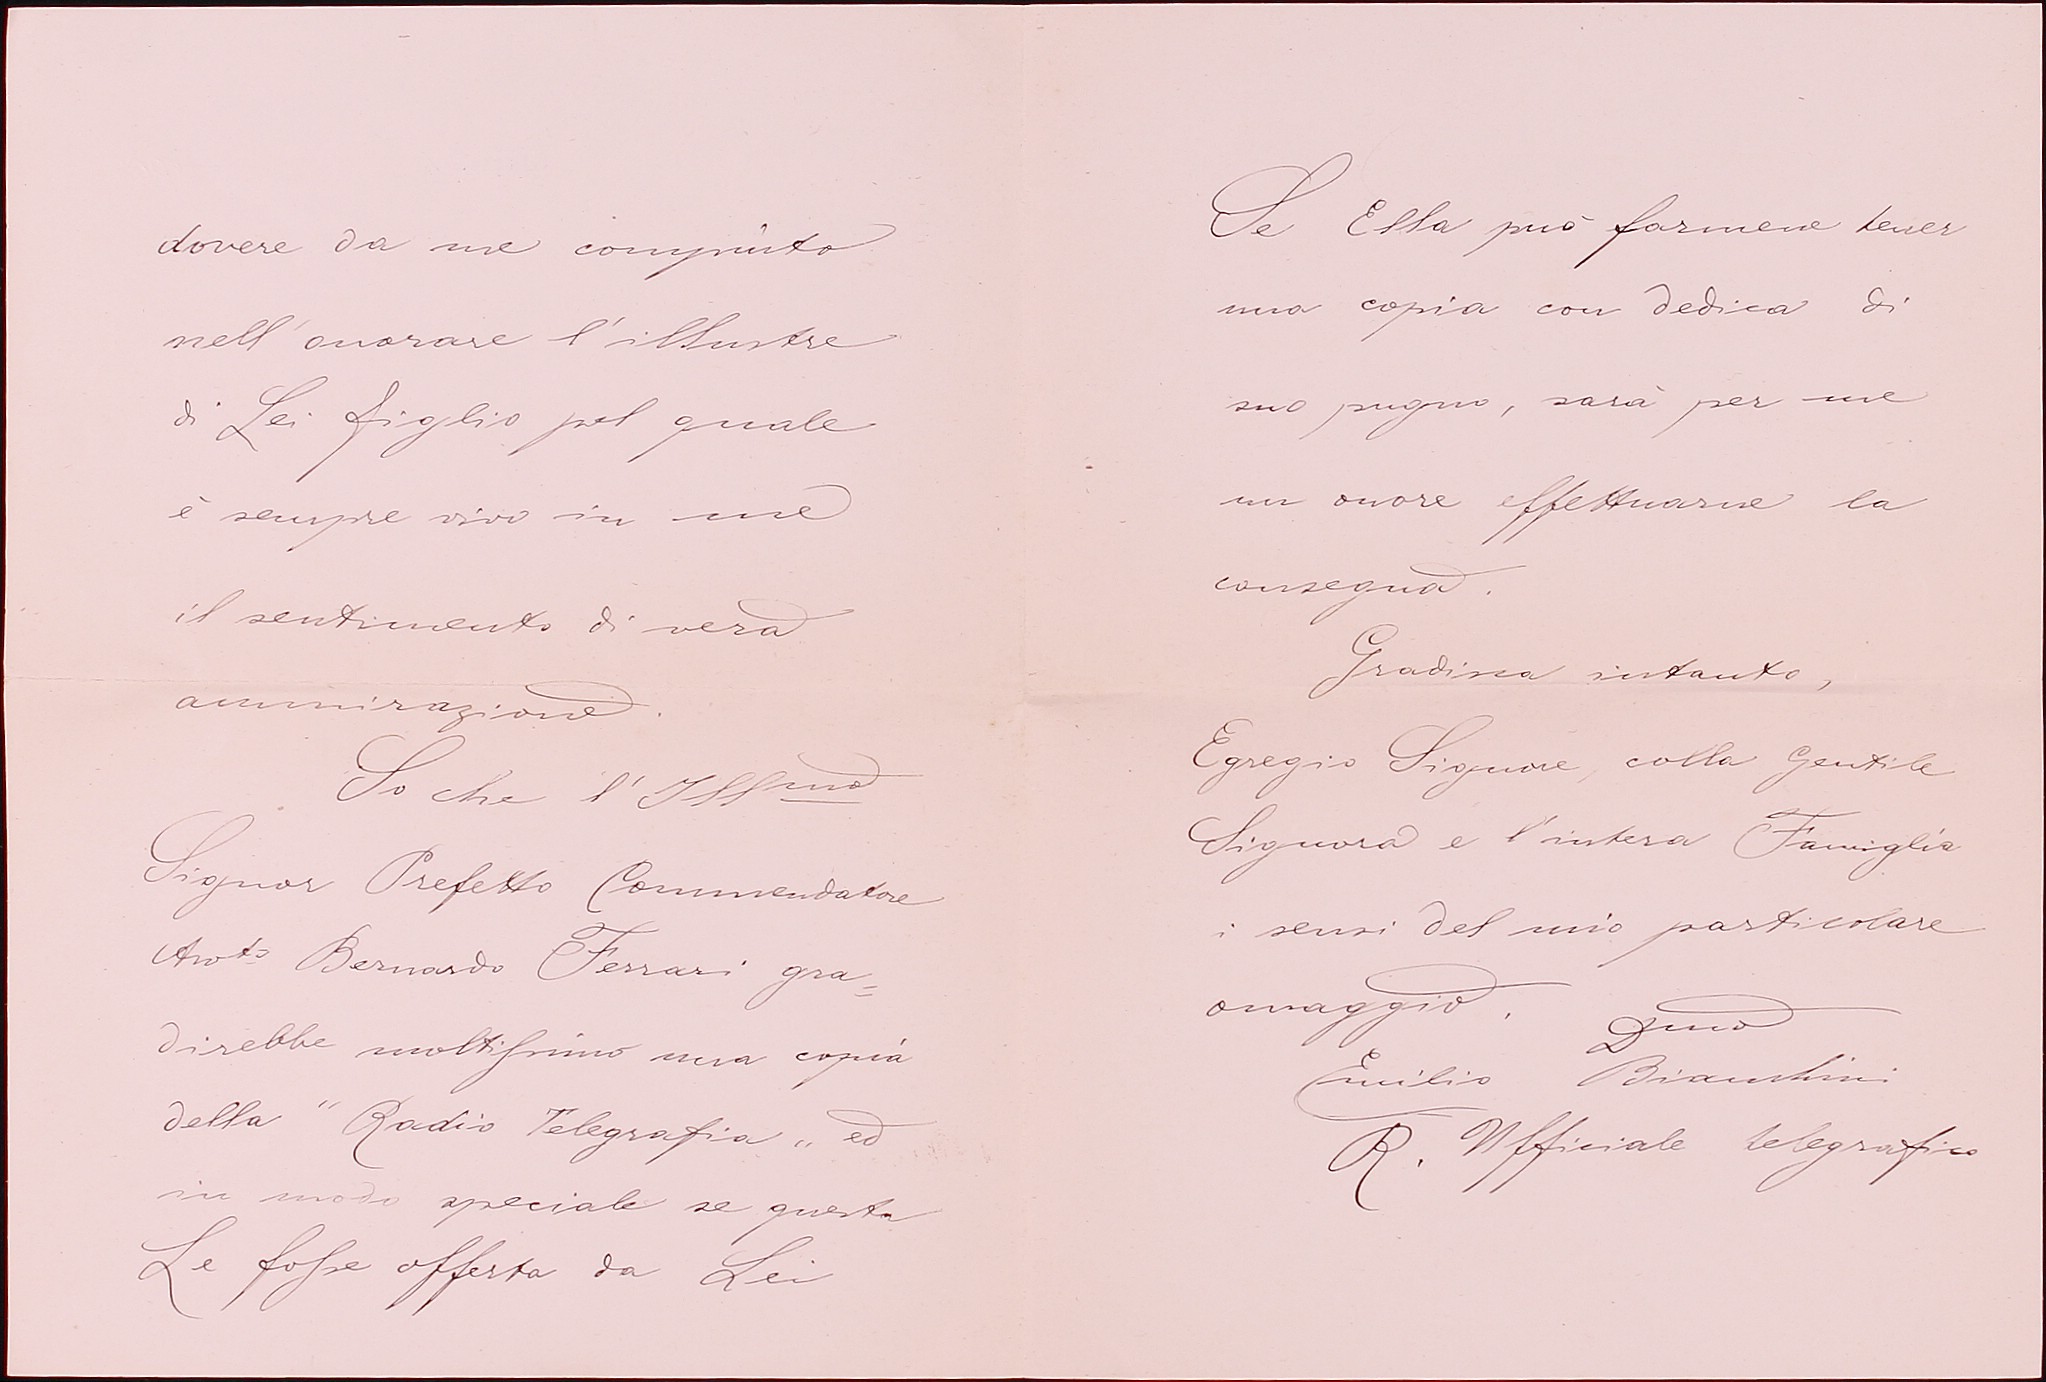 dovere da me compiuto
nell'onorare l'illustre
di Lei figlio pel quale
è sempre vivo in me
il sentimento di vera
ammirazione.
So che l'Illmo
Signor Prefetto Commendatore
Avvto Bernardo Ferrari gra=
direbbe moltissimo una copia
della "Radio Telegrafia„ ed
in modo speciale se questa
Le fosse offerta da Lei
Se Ella può farmene tener
una copia con dedica di
suo pugno, sarà per me
un onore effettuarne la
consegna.
Gradisca intanto,
Egregio Signore, colla Gentile
Signora e l'intera Famiglia
i sensi del mio particolare
omaggio.
Dmo
Emilio Bianchini
R. Ufficiale telegrafico